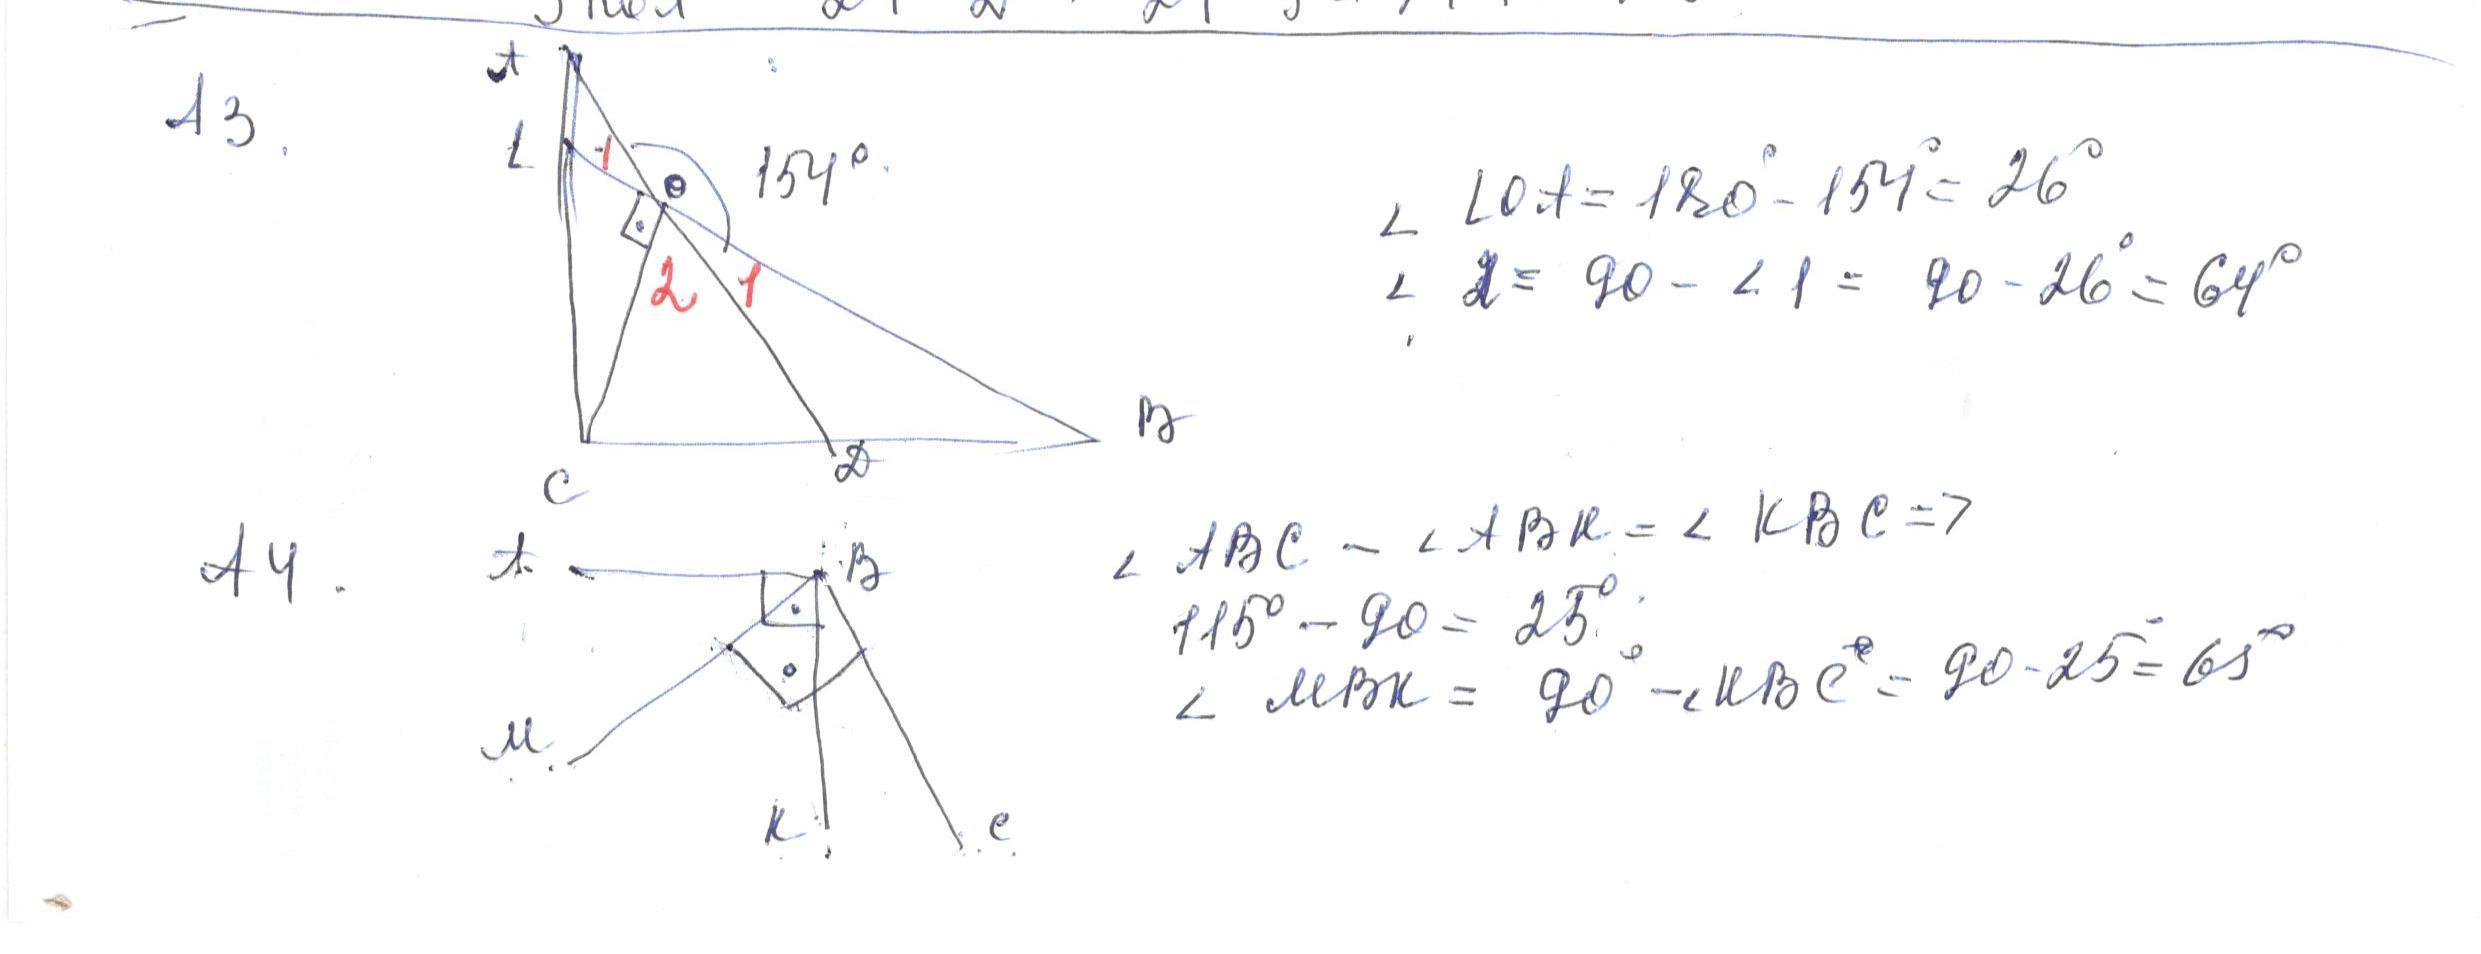 A3.
A
L
1
O
154°.
2
1
C
D
B
∠ LOA = 180° - 154° = 26°
∠ 2 = 90 - ∠1 = 90 - 26° = 64°
A4.
A
B
M
K
C
∠ ABC - ∠ABK = ∠ KBC =>
115° - 90 = 25°.
∠ MBK = 90° - ∠KBC = 90 - 25° = 65°